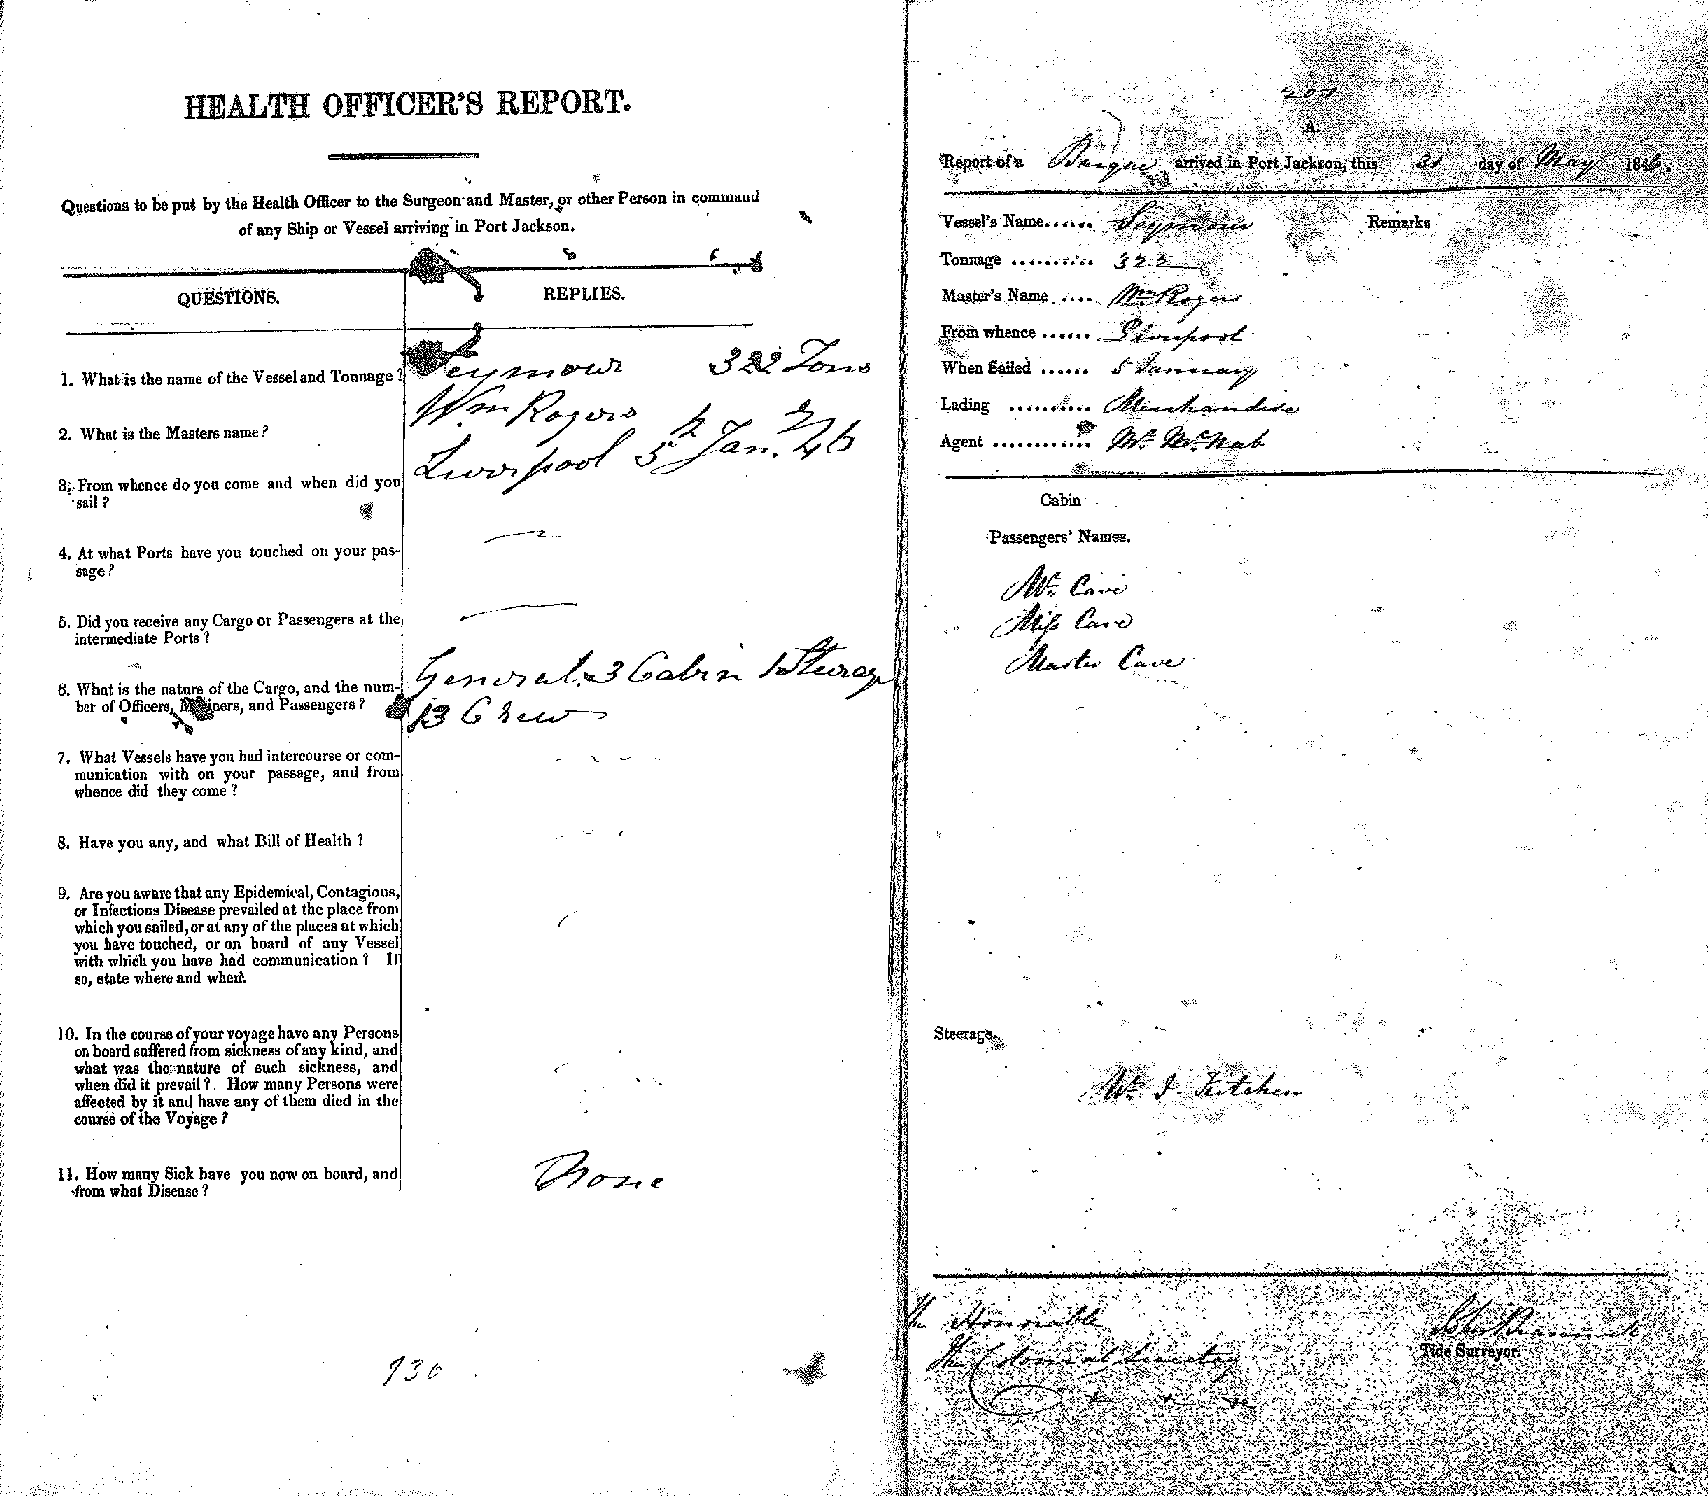 HEALTH OFFICER'S REPORT.
Questions to be put by the Health Officer to the Surgeon and Master, or other Person in command
of any Ship or Vessel arriving in Port Jackson.
QUESTIONS.
REPLIES.
1. What is the name of the Vessel and Tonnage?
Seymour 322 Tons
2. What is the Masters name?
Wm Rogers
3. From whence do you come and when did you
sail?
Liverpool 5th Jany 46
4. At what Ports have you touched on your pas-
sage?
5. Did you receive any Cargo or Passengers at the
intermediate Ports?
6. What is the nature of the Cargo, and the num-
ber of Officers, Mariners, and Passengers?
General 3 Cabin 1 Steerage
13 Crew
7. What Vessels have you had intercourse or com-
munication with on your passage, and from
whence did they come?
8. Have you any, and what Bill of Health?
9. Are you aware that any Epidemical, Contagious,
or Infectious Disease prevailed at the place from
which you sailed, or at any of the places at which
you have touched, or on board of any Vessel
with which you have had communication? If
so, state where and when.
10. In the course of your voyage have any Persons
on board suffered from sickness of any kind, and
what was the nature of such sickness, and
when did it prevail? How many Persons were
affected by it and have any of them died in the
course of the Voyage?
11. How many Sick have you now on board, and
from what Disease?
None
930
A.
Report of a Barque arrived in Port Jackson, this 31 day of May 1846.
Vessel's Name...... Seymour
Remarks
Tonnage .......... 322
Master's Name .... Wm Roger
From whence ...... Liverpool
When Sailed ...... 5 January
Lading .......... Merchandise
Agent ............ Mr McNab
Cabin
Passengers' Names.
Mr Cave
Miss Cave
Master Cave
Steerage
Mr J. Kitchen
The Honorable
The Colonial Secretary
Tide Surveyor.